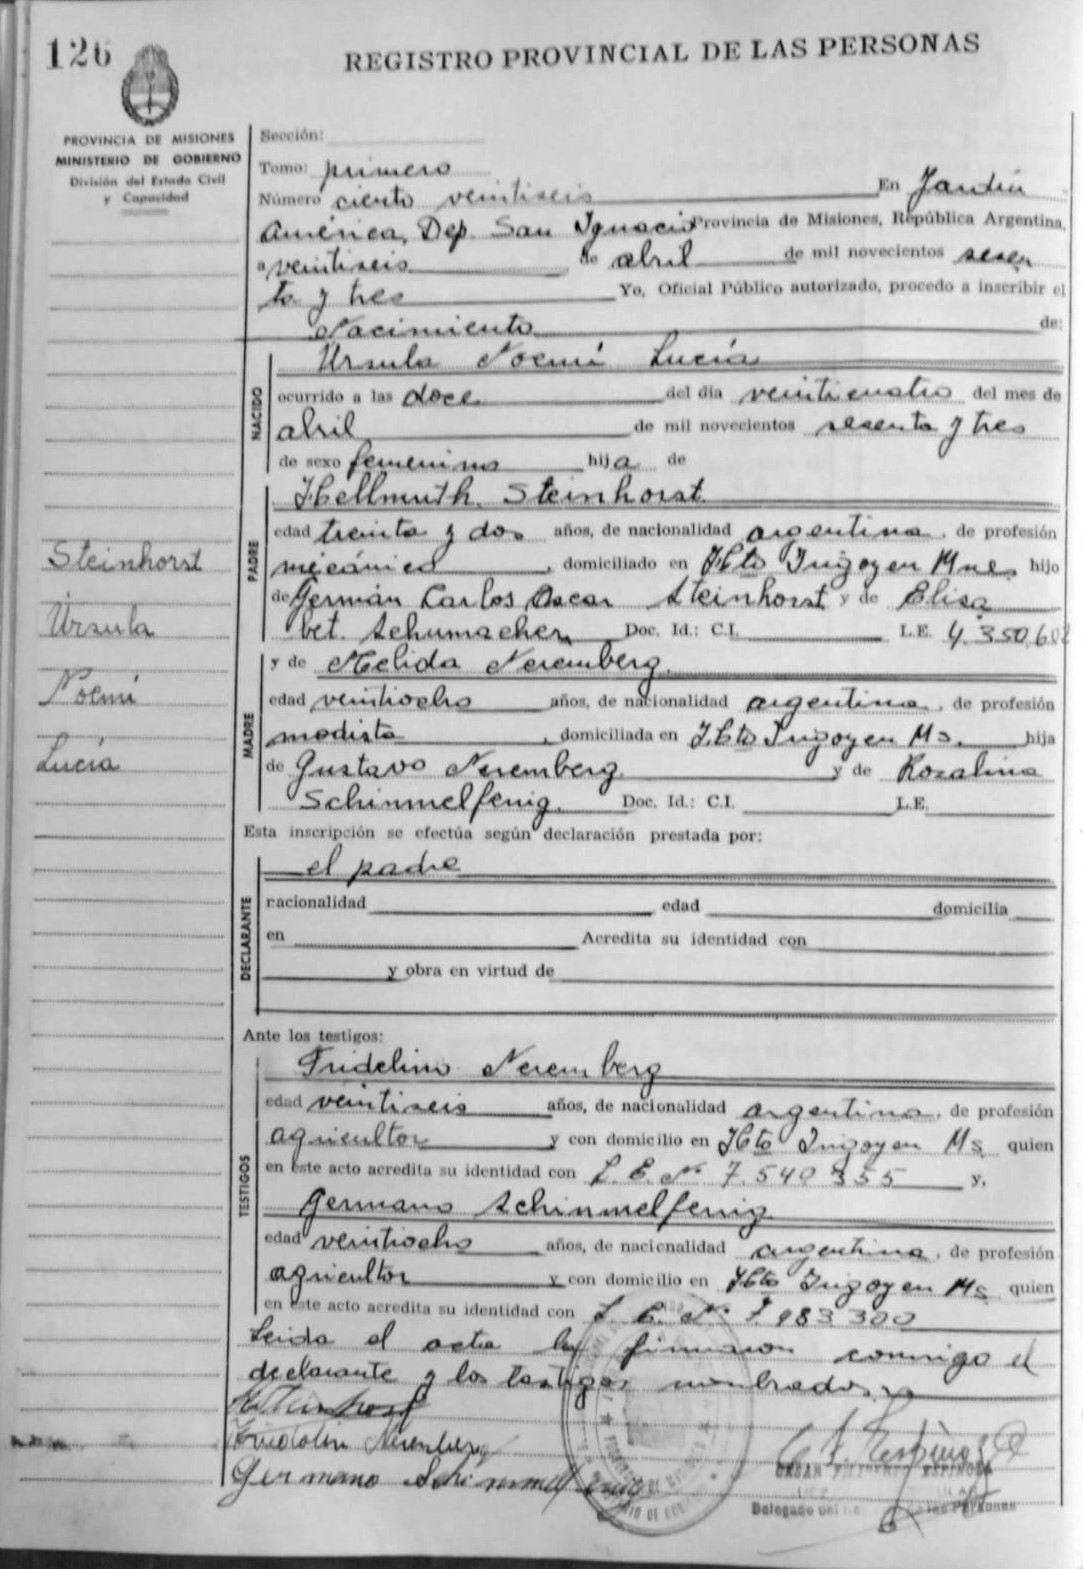 126
REGISTRO PROVINCIAL DE LAS PERSONAS
PROVINCIA DE MISIONES
MINISTERIO DE GOBIERNO
División del Estado Civil
y Capacidad
Sección:
Tomo: primero
Número ciento veintiseis En Jardín
América, Dep. San Ignacio Provincia de Misiones, República Argentina,
a veintiseis de abril de mil novecientos sesen
ta y tres Yo, Oficial Público autorizado, procedo a inscribir el
Nacimiento de:
NACIDO
Ursula Noemí Lucía
ocurrido a las doce del día veinticuatro del mes de
abril de mil novecientos sesenta y tres
de sexo femenino hija de
PADRE
Hellmuth Steinhorst
edad treinta y dos años, de nacionalidad argentina, de profesión
mecánico, domiciliado en Hto Irigoyen Mnes hijo
de Germán Carlos Oscar Steinhorst y de Elisa
bet. Schumacher Doc. Id.: C.I. L.E. 4.350.602
Steinhorst
Úrsula
Noemí
Lucía
MADRE
y de Nelida Neremberg
edad veintiocho años, de nacionalidad argentina, de profesión
modista, domiciliada en Hto Irigoyen Ms. hija
de Gustavo Neremberg y de Rozalina
Schinmelfenig. Doc. Id.: C.I. L.E.
Esta inscripción se efectúa según declaración prestada por:
DECLARANTE
el padre
nacionalidad edad domicilia
en Acredita su identidad con
y obra en virtud de
Ante los testigos:
TESTIGOS
Fridolino Neremberg
edad veintiseis años, de nacionalidad argentina, de profesión
agricultor y con domicilio en Hto Irigoyen Ms quien
en este acto acredita su identidad con L. E. Nº 7.540.355 y,
Germano Schinmelfenig
edad veintiocho años, de nacionalidad argentina, de profesión
agricultor y con domicilio en Hto Irigoyen Ms quien
en este acto acredita su identidad con L. E. Nº 7.983.300
Leida el acta la firmaron conmigo el
declarante y los testigos nombrados
Fridolin Neremberg
Germano Schinmelfenig
CESAR ESPINOSA
Delegado del de las Personas